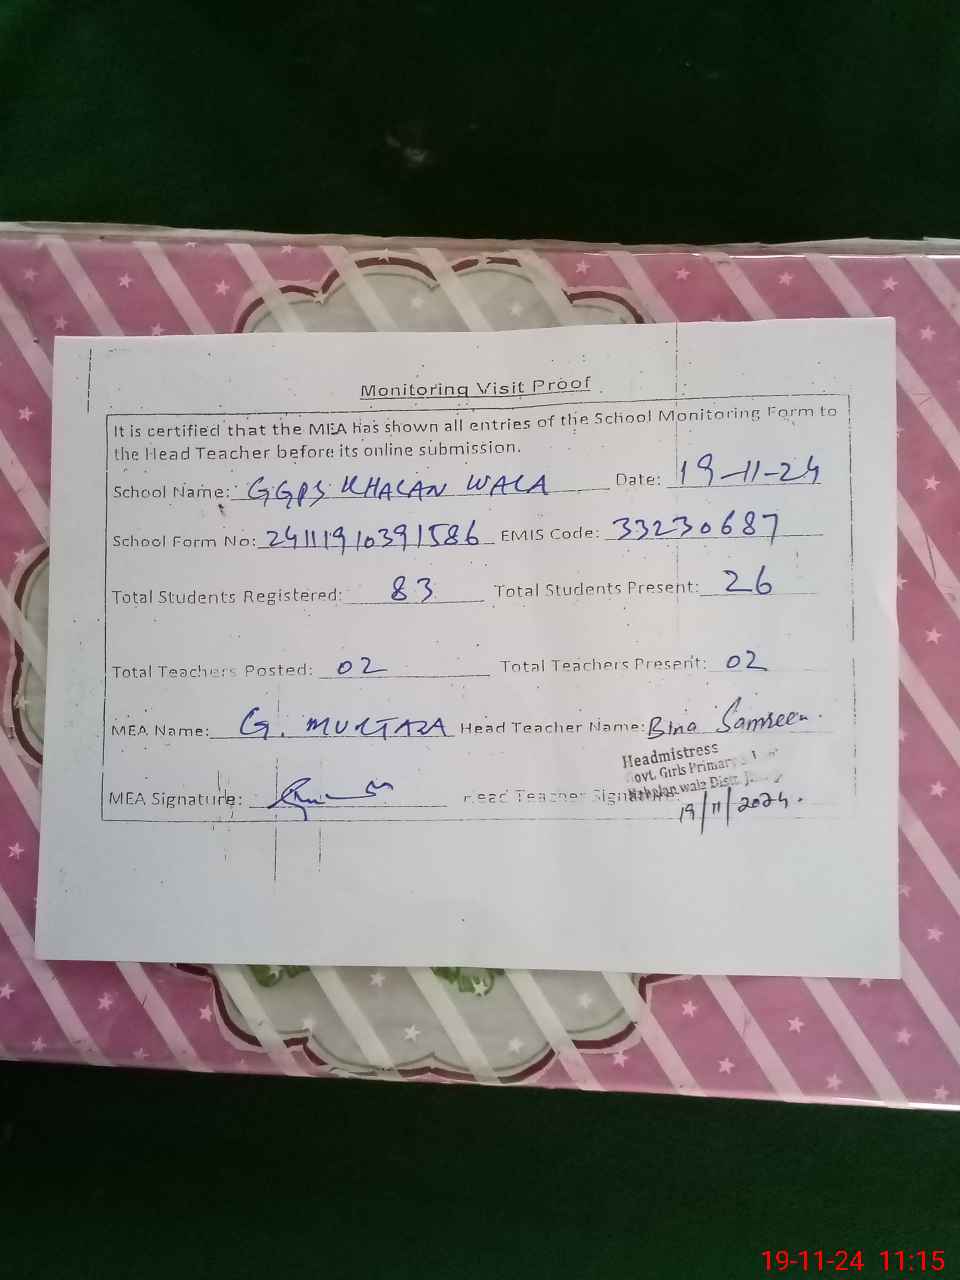 Monitoring Visit Proof
It is certified that the MEA has shown all entries of the School Monitoring Form to
the Head Teacher before its online submission.
School Name: GGPS KHALAN WALA Date: 19-11-24
School Form No: 24111910391586 EMIS Code: 33230687
Total Students Registered: 83 Total Students Present: 26
Total Teachers Posted: 02 Total Teachers Present: 02
MEA Name: G. MURTAZA Head Teacher Name: Bina Samreen.
Headmistress
Govt. Girls Primary
wala Distt.
MEA Signature: Head Teacher Signature:
19/11/2024.
19-11-24 11:15